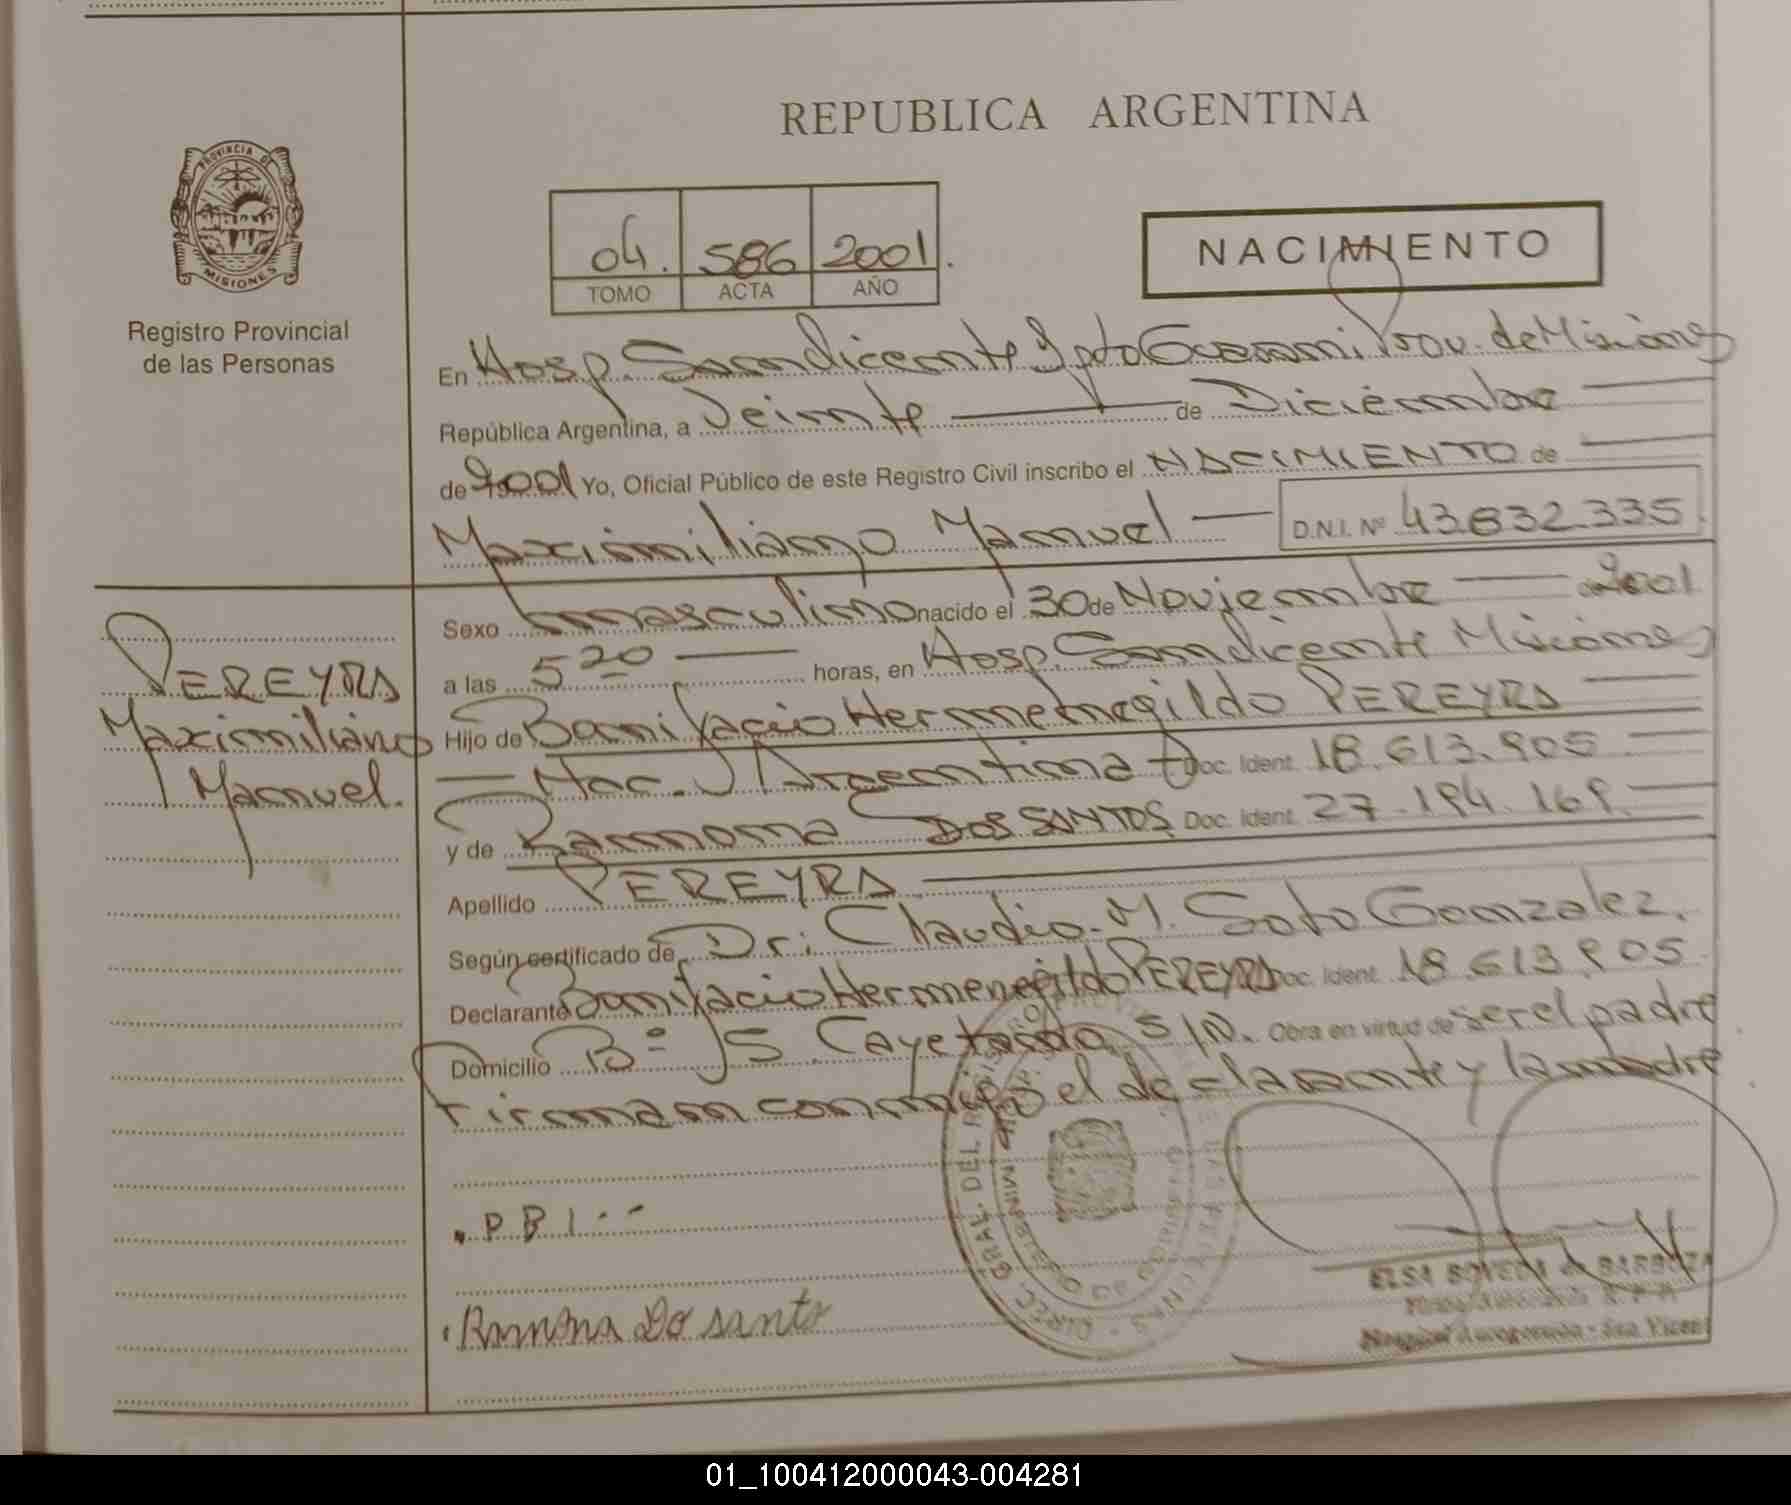 REPUBLICA ARGENTINA
PROVINCIA DE
MISIONES
Registro Provincial
de las Personas
04. 586 2001.
TOMO ACTA AÑO
NACIMIENTO
En Hosp. San Vicente Dpto Guarani Prov. de Misiones
República Argentina, a Veinte de Diciembre
de 2001 Yo, Oficial Público de este Registro Civil inscribo el NACIMIENTO de
Maximiliano Manuel D.N.I. Nº 43.832.335
Sexo masculino nacido el 30 de Noviembre 2001
a las 5 20 horas, en Hosp. San Vicente Misiones
PEREYRA
Maximiliano
Manuel.
Hijo de Bonifacio Hermenegildo PEREYRA
Nac. Argentina Doc. Ident. 18.613.905
y de Ramona DOS SANTOS Doc. Ident. 27.194.169
Apellido PEREYRA
Según certificado de Dr: Claudio M. Soto Gonzalez.
Declarante Bonifacio Hermenegildo PEREYRA Doc. Ident. 18 613.905
Domicilio Bº S. Cayetano S/N. Obra en virtud de ser el padre
Firman conmigo el declarante y la madre
. P B I
Ramona Do santo
DIREC. GRAL. DEL REGISTRO
ELSA BOVEDA de BARBOZA
01_100412000043-004281